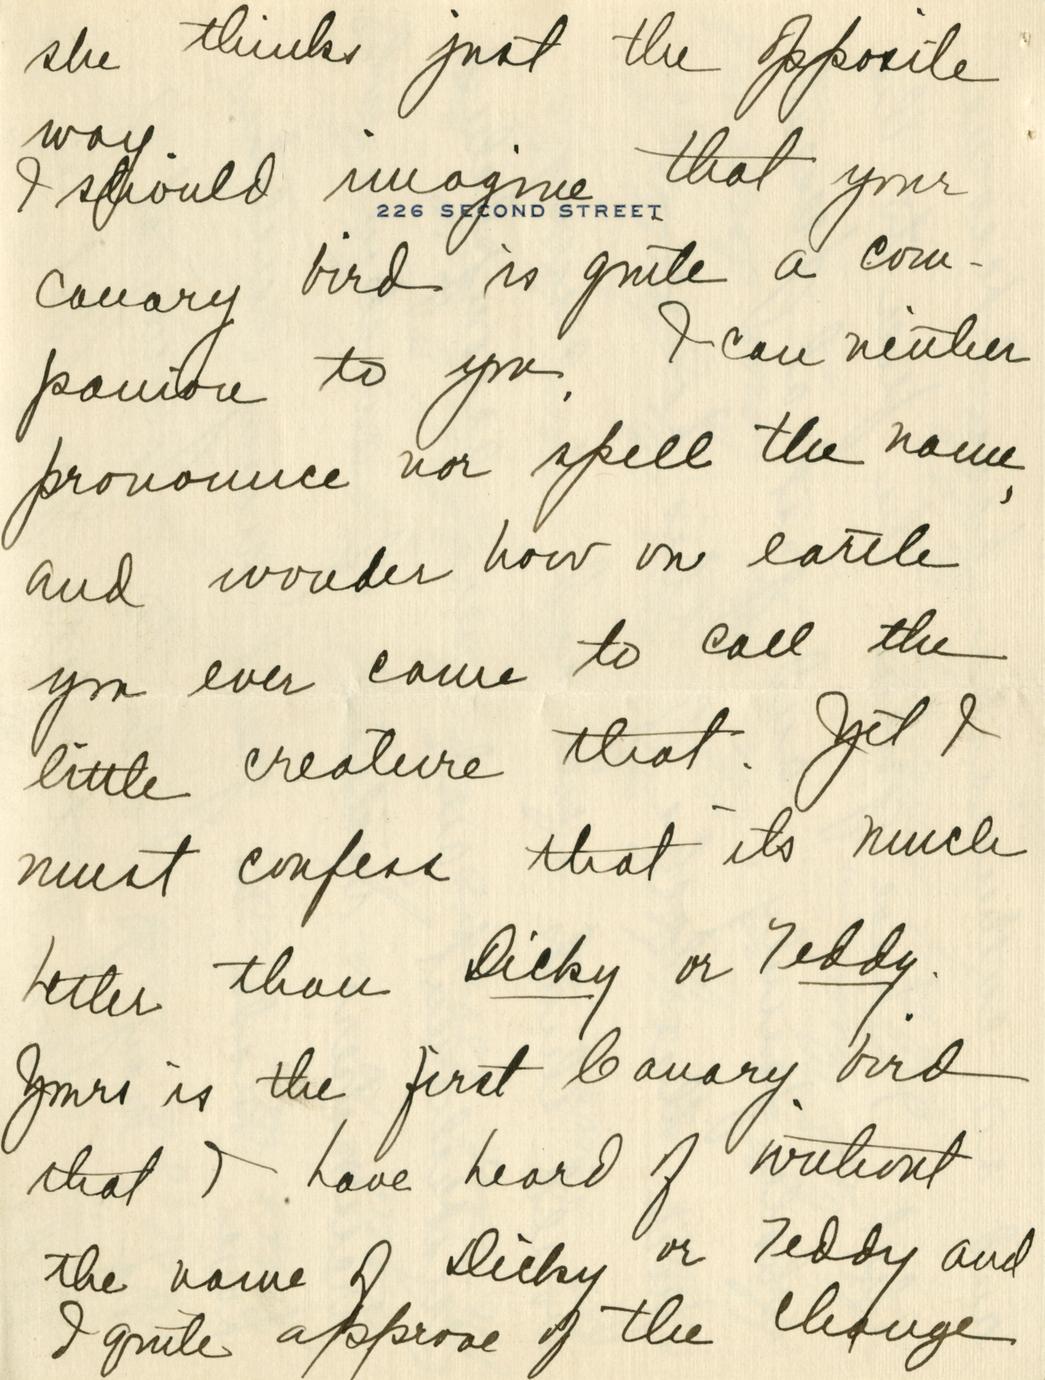 she thinks just the opposite
way.
I should imagine that your
226 SECOND STREET
canary bird is quite a com-
panion to you. I can neither
pronounce nor spell the name,
and wonder how on earth
you ever came to call the
little creature that. Yet I
must confess that its much
better than Dicky or Teddy.
Yours is the first Canary bird
that I have heard of without
the name of Dicky or Teddy and
I quite approve of the change